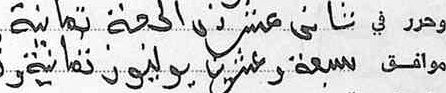 وحرر في ثاني عشرين الحجة ثمانية
موافق سبعة وعشرين يوليوز ثمانية